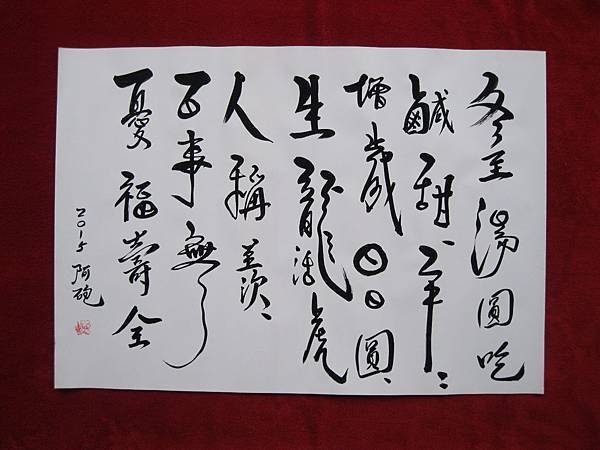 冬至湯圓吃
鹹甜、年：
增歲〇〇圓、
生龍活虎
人稱羨、
百事無
憂福壽全
2015 阿砲